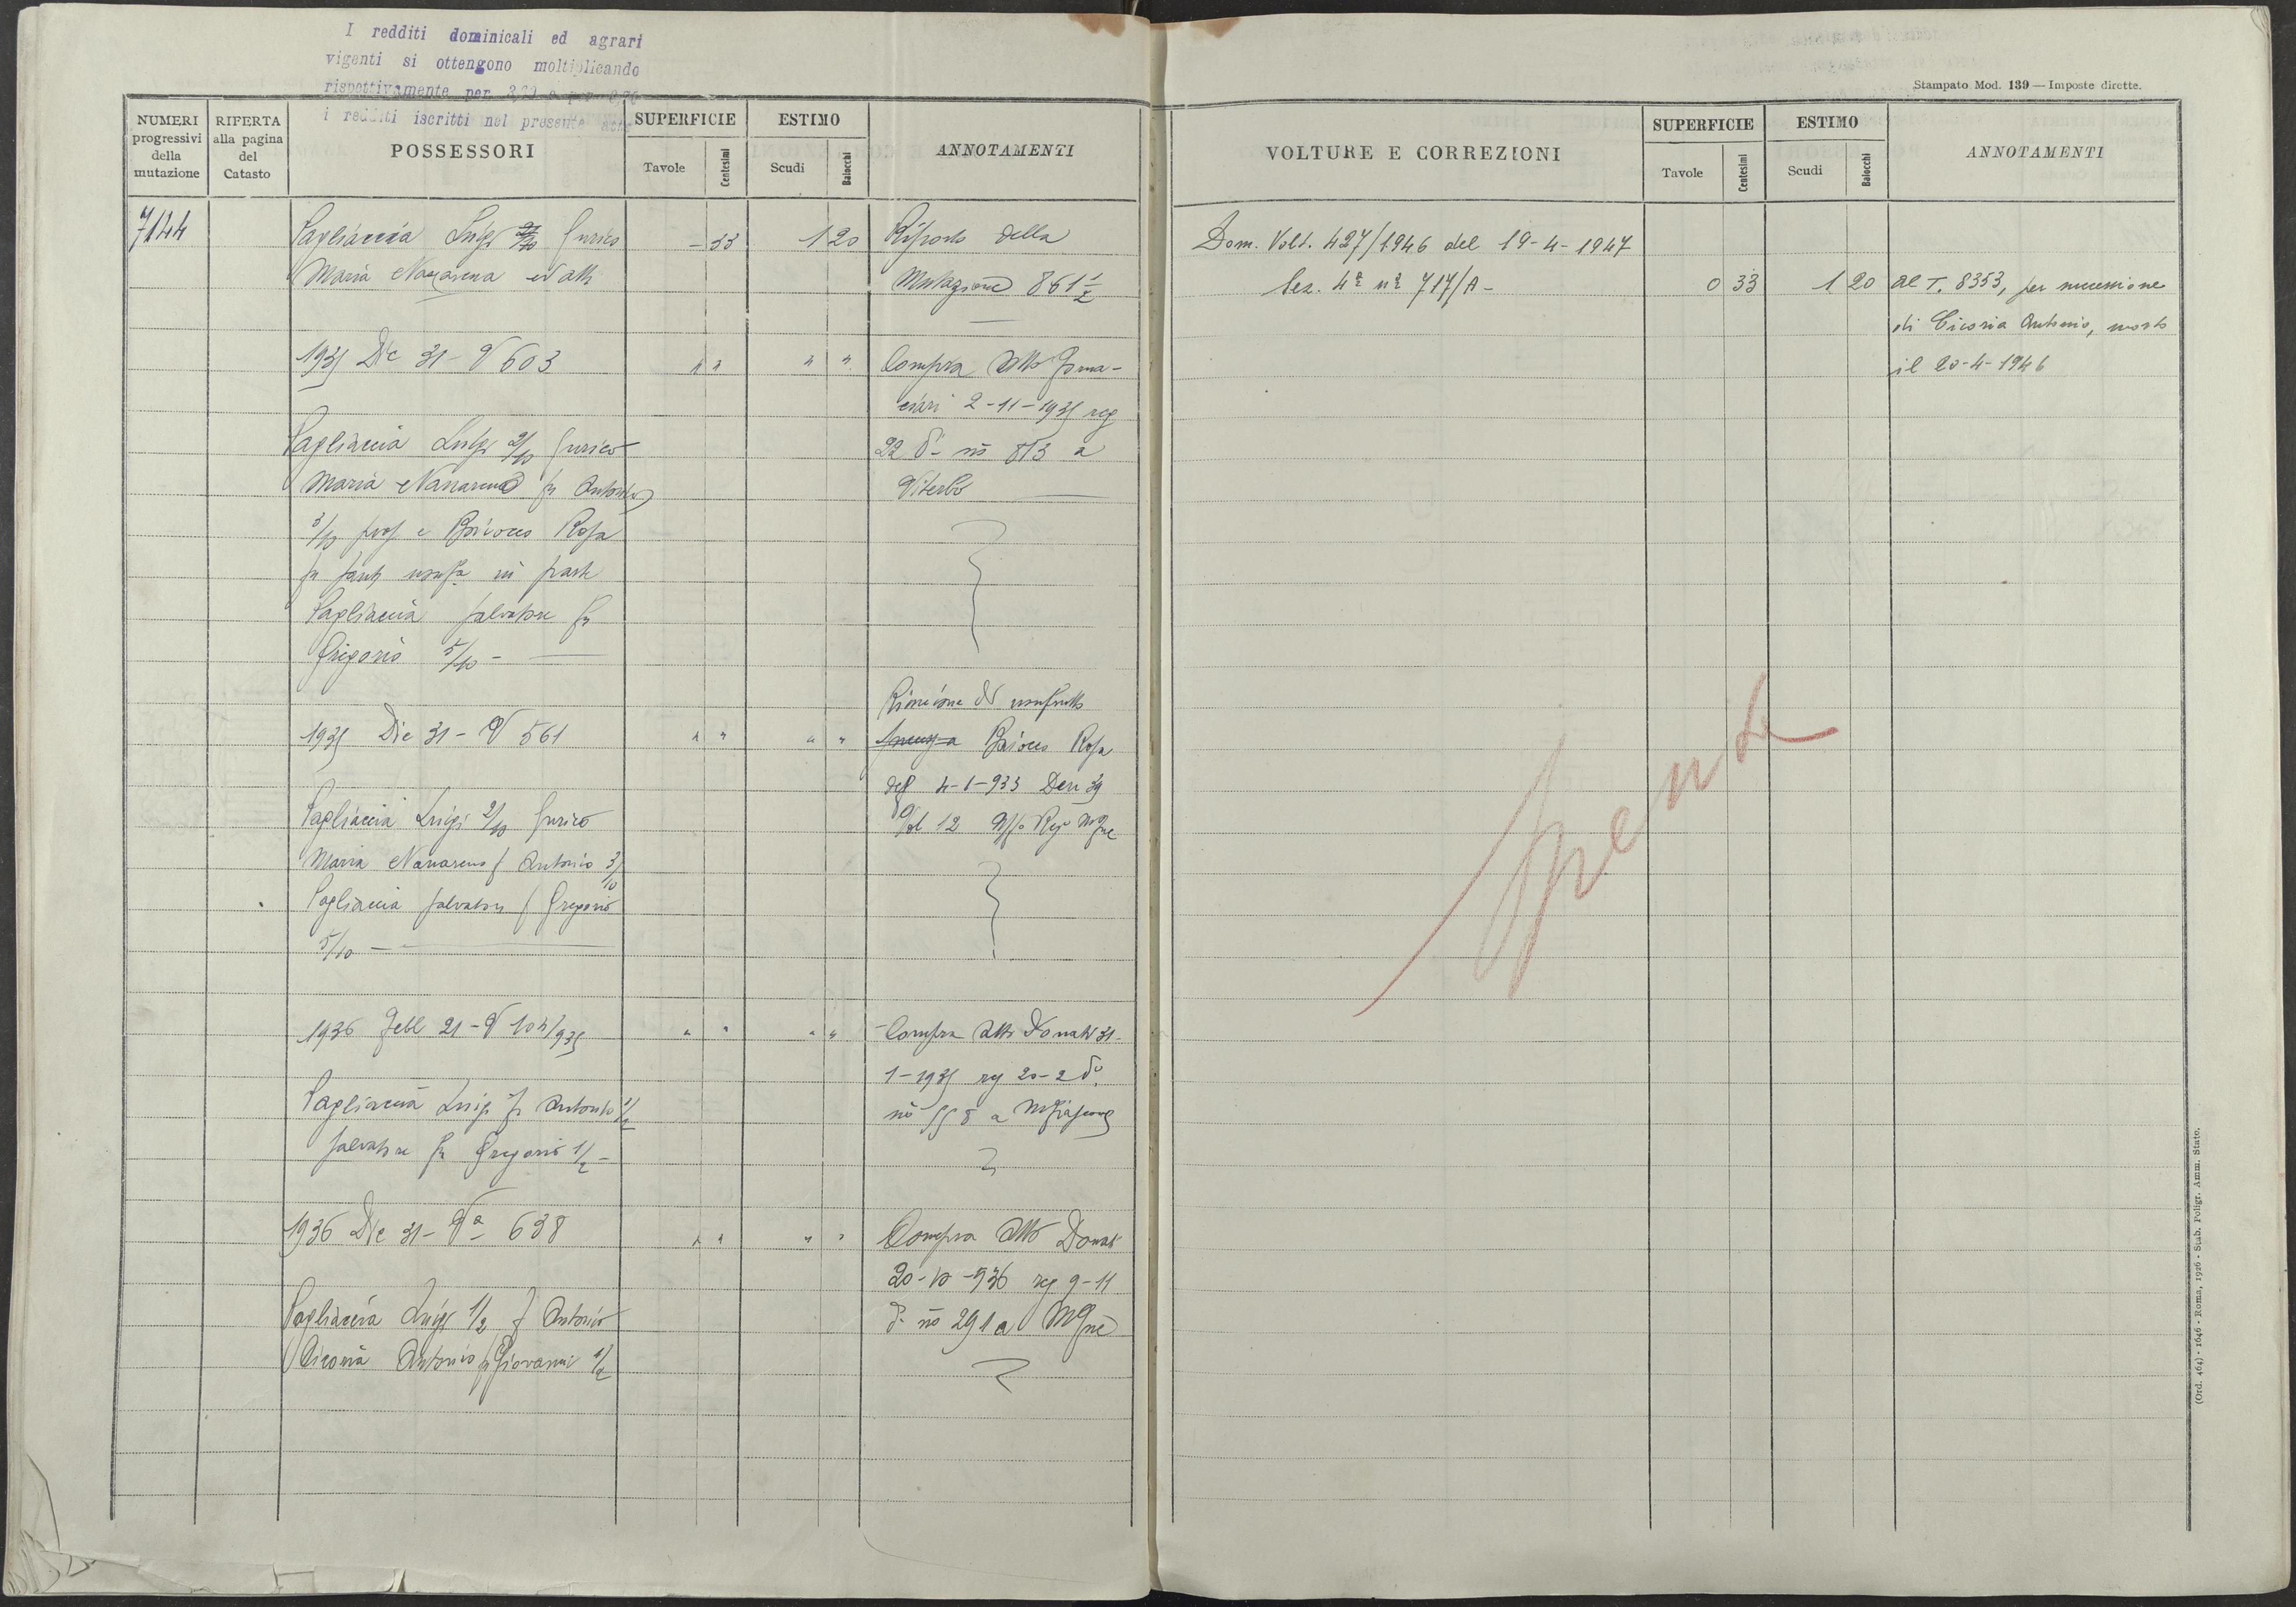 I redditi dominicali ed agrari
vigenti si ottengono moltiplicando
rispettivamente per
i redditi iscritti nel presente atto
Stampato Mod. 139 — Imposte dirette.
NUMERI progressivi della mutazione
RIFERTA alla pagina del Catasto
POSSESSORI
SUPERFICIE
Tavole
Centesimi
ESTIMO
Scudi
Baiocchi
ANNOTAMENTI
7144
Pagliaccia Luigi
Maria Nazarena ed altri
- 33 1 20
Riporto della
Mutazione 861 1/2
1935 Dic 31 - V 603
" " " "
Compra Atto
2-11-1935 reg
22 d° n° 813 a
Viterbo
Pagliaccia Luigi 2/10
Maria Nazarena fu Antonio
3/10 prop e Baiocco Rosa
fu usuf° in parte
Pagliaccia Salvatore fu
Gregorio 5/10 -
1935 Dic 31 - V 561
" " " "
Riunione di usufrutto
Baiocco Rosa
4-1-933 Den 39
Vol 12
Pagliaccia Luigi 2/10
Maria Nazarena f Antonio 3/10
Pagliaccia Salvatore f Gregorio
5/10
1936 Febb 21 - V 104/935
" " " "
Compra Atto Donati 31-
1-1935 reg 20-2 d°
n° 558 a
Pagliaccia Luigi fu Antonio 1/2
Salvatore fu Gregorio 1/2 -
1936 Dic 31 - Va 638
" " " "
Compra Atto Donati
20-10-936 reg 9-11
d° n° 291 a
Pagliaccia Luigi 1/2 f Antonio
Ciconia Antonio fu Giovanni 1/2
VOLTURE E CORREZIONI
SUPERFICIE
Tavole
Centesimi
ESTIMO
Scudi
Baiocchi
ANNOTAMENTI
Dom. Volt. 427/1946 del 19-4-1947
Sez. 4ª nº 717/A -
0 33 1 20
al T. 8353, per successione
di Ciconia Antonio, morto
il 20-4-1946
Spenta
(Ord. 464) - 1646 - Roma, 1926 - Stab. Poligr. Amm. Stato.